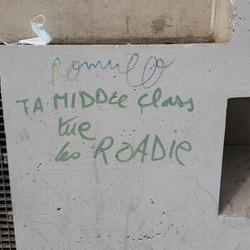 Romullo
TA MIDDLE Class
tue
les ROADIE